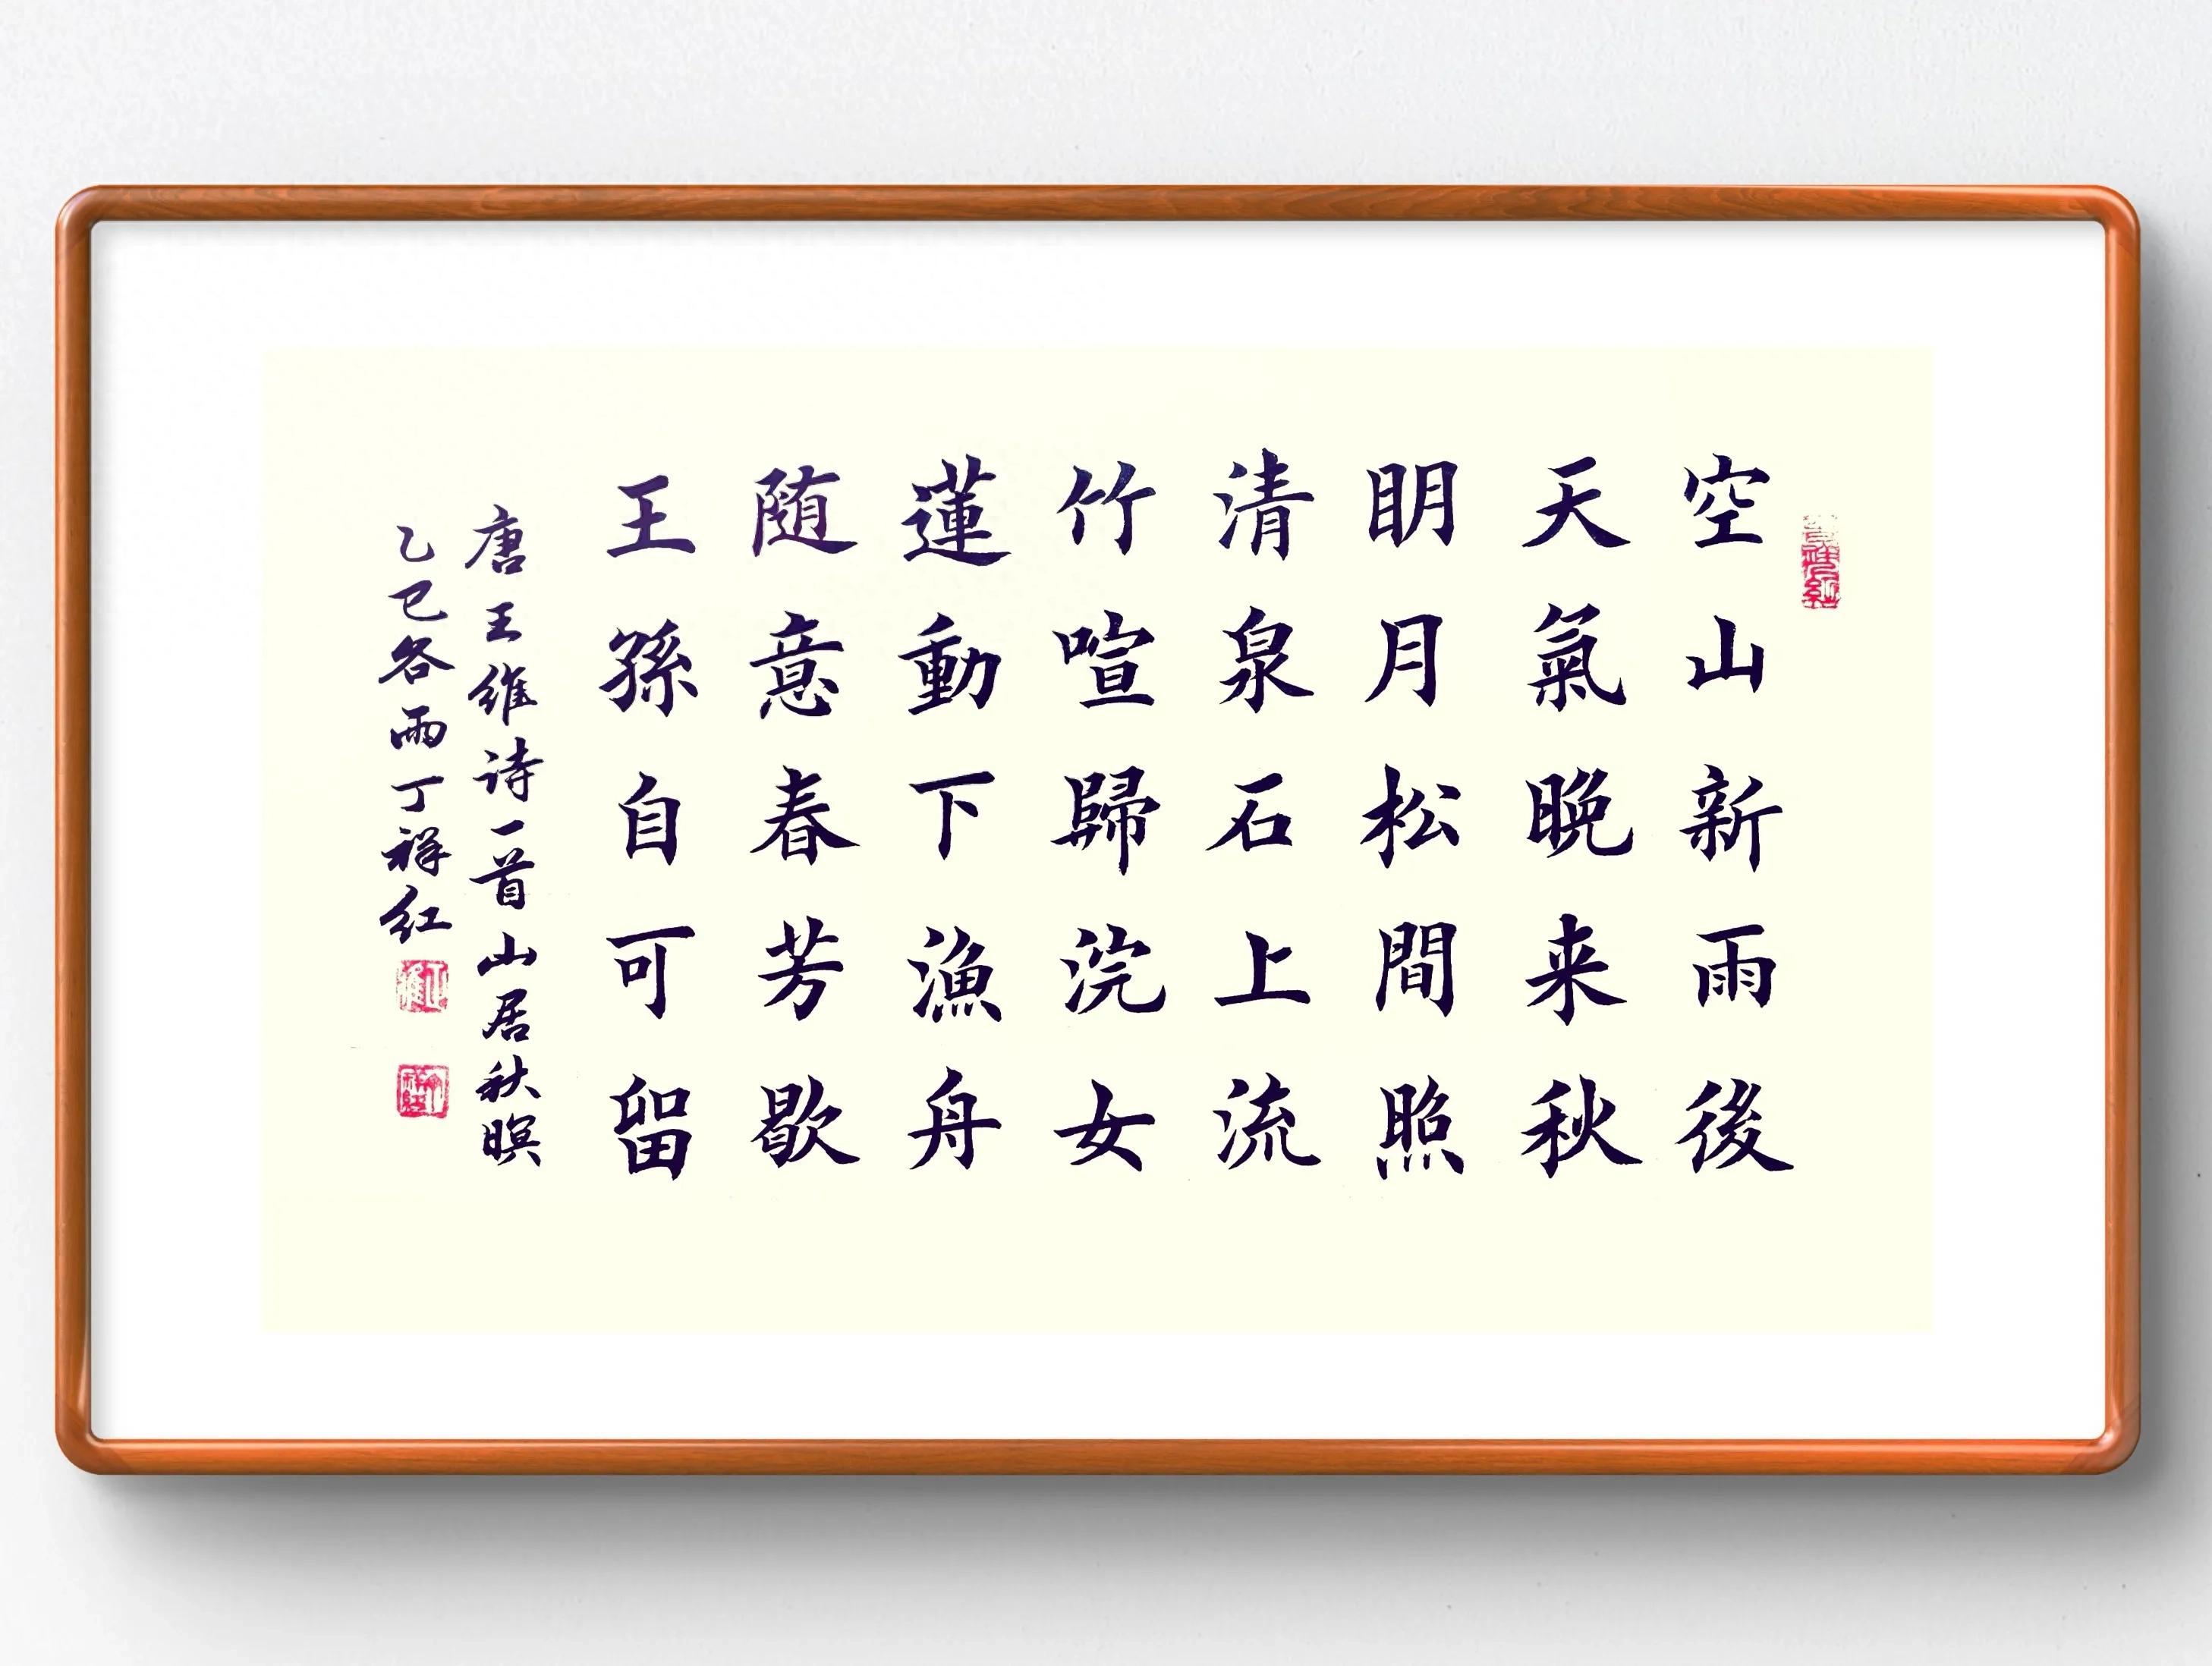 空山新雨後
天氣晚来秋
明月松間照
清泉石上流
竹喧歸浣女
蓮動下漁舟
随意春芳歇
王孫自可留
唐王維诗一首山居秋暝
乙巳谷雨丁祥红